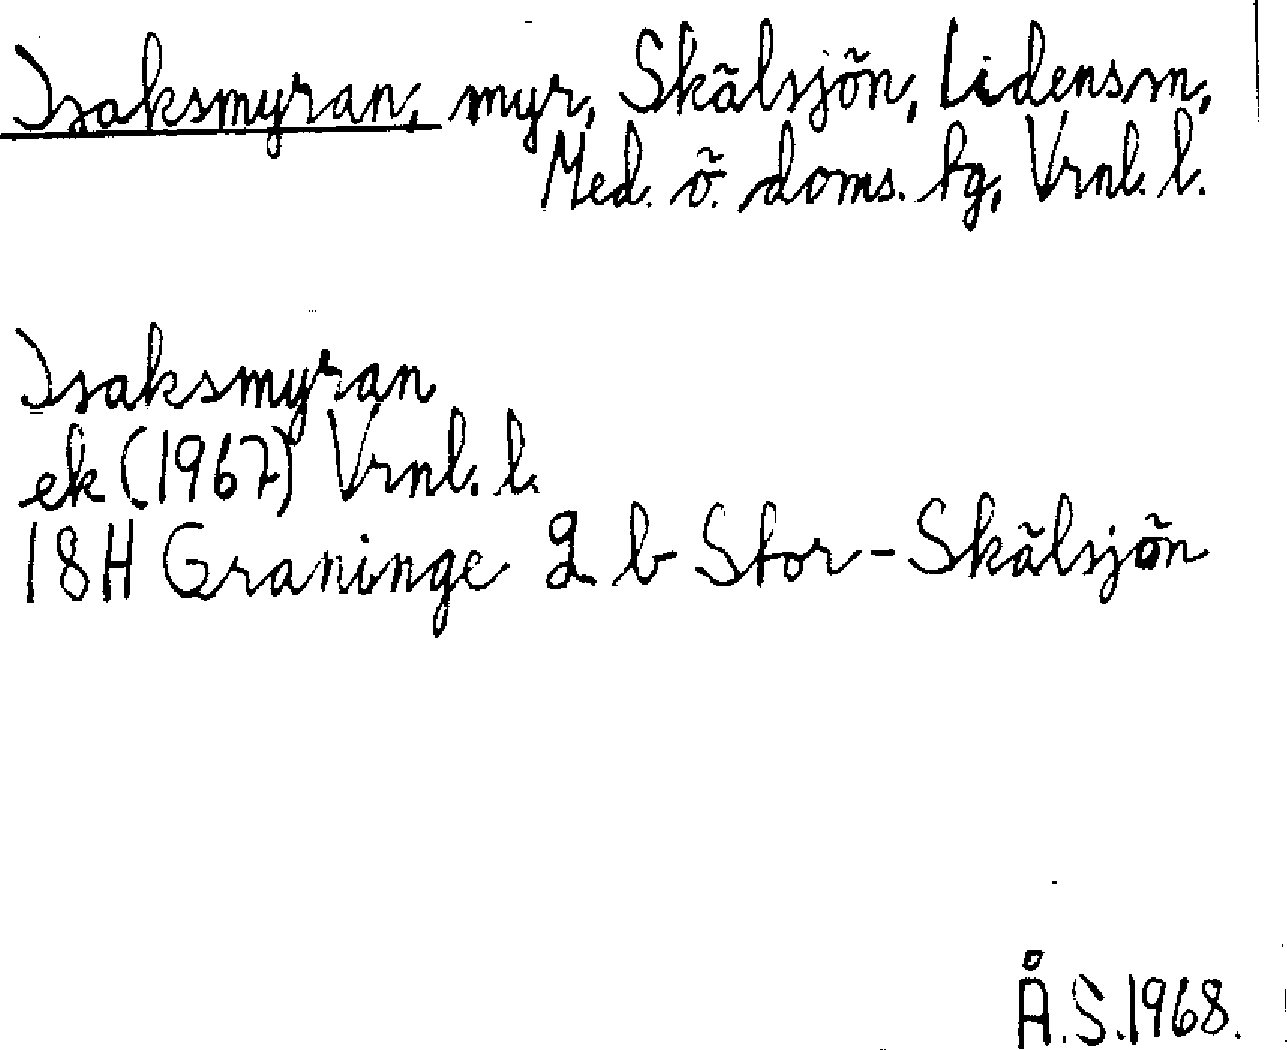 Isaksmyran, myr, Skälsjön, Lidens sn,
Med. ö. doms. tg, Vrnl. l.
Isaksmyran
ek (1967) Vrnl. l.
18H Graninge 2 b Stor-Skälsjön
Å.S.1968.